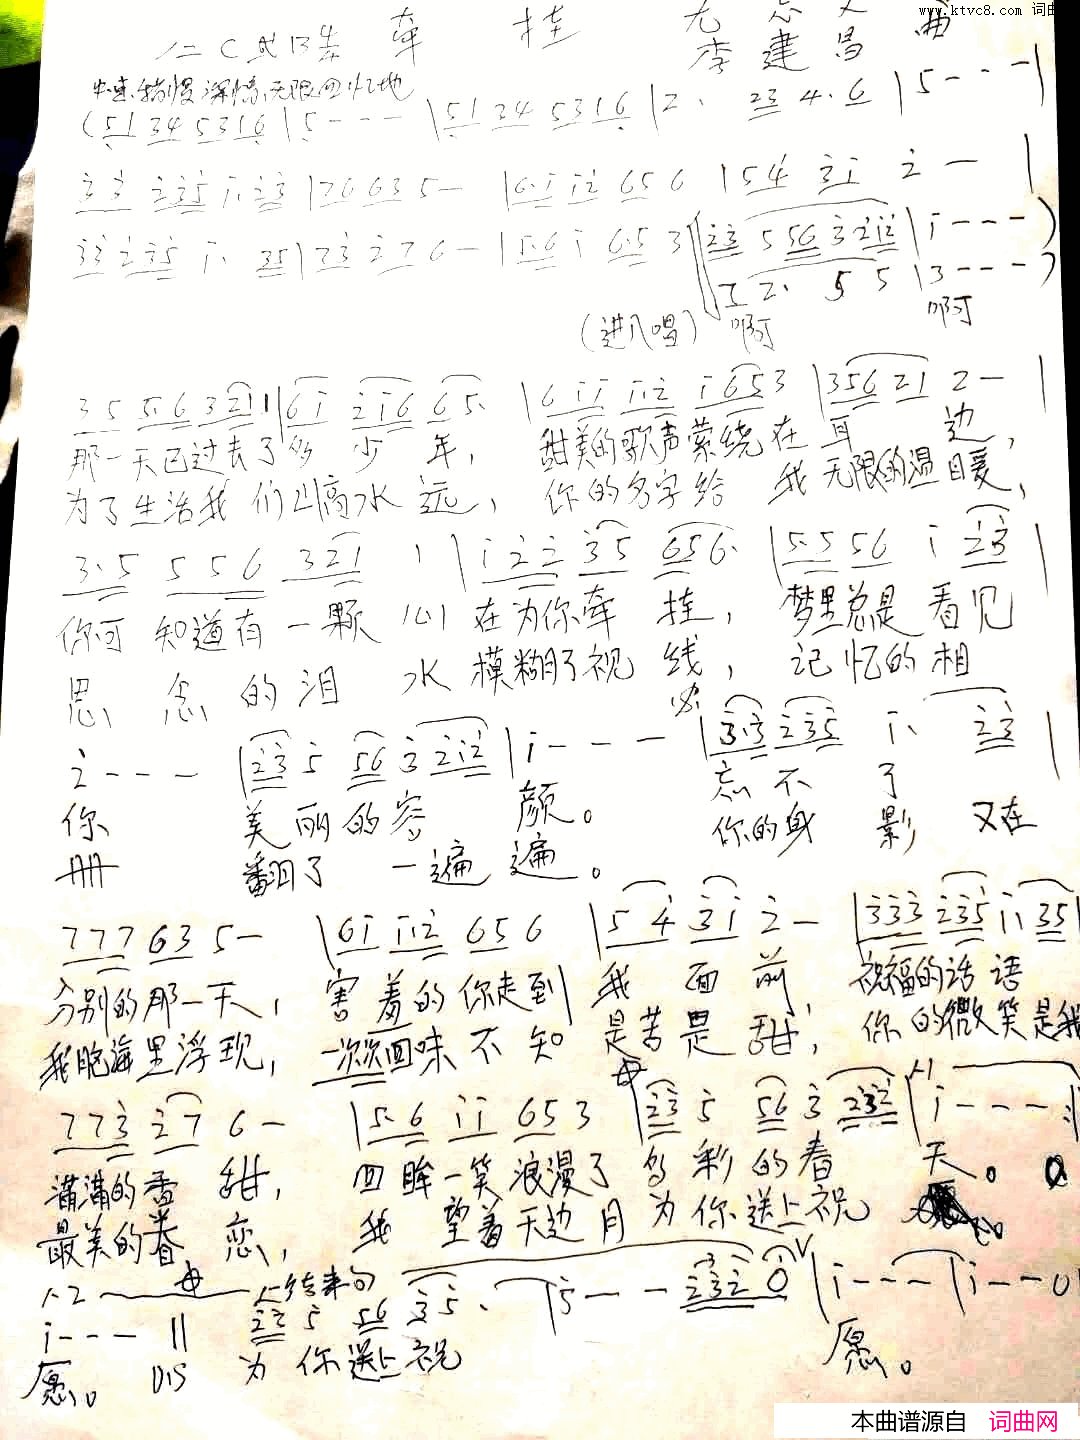 www.ktvc8.com 词曲
1=C 牵 挂 曲
李建昌
中速 稍慢 深情 无限回忆地
(51 34 5316 | 5 - - - | 51 34 5316 | 2· 23 4· 6 | 5 - - - |
33 235 i· 23 | 76 63 5 - | 6·i i2 65 6 | 54 3i 2 - |
33 235 i· 35 | 73 27 6 - | 5·6 i 6·5 3 | 23 5 56 3 2i2 | i - - - )
2· 5 5 | 3 - - - )
(进入唱) 啊 啊
35 5·6 321 1 | 6i 2i6 65· | 6ii ii2 i653 | 356 21 2 - |
那一天已过去了多少年, 甜美的歌声萦绕在耳边,
为了生活我们山高水远, 你的名字给我无限的温暖,
3·5 5 5 6 321 1 | i22 35 656· | 5·5 56 i 23 |
你可知道有一颗心在为你牵挂, 梦里总是看见
思念的泪水模糊了视线, 记忆的相
2 - - - | 23 5 56 3 2i2 | i - - - | 3·3 235 i· 23 |
你 美丽的容颜。 忘不了
册 翻了一遍遍。 你的身影又在
777 63 5 - | 6i ii2 65 6 | 5 4 3i 2 - | 333 235 ii 35 |
分别的那一天, 害羞的你走到我面前, 祝福的话语
我脑海里浮现, 一次次回味不知是苦是甜, 你的微笑是我
773 27 6 - | 5·6 ii 65 3 | 23 5 56 3 232 | i - - - :|
满满的香甜, 回眸一笑浪漫了多彩的春天。
最美的眷恋, 我望着天边月为你送上祝
结束句
i - - - || 22 5 56 35· | 5 - - 232 0 | i - - - | i - - 0
愿。 D.S 为你送上祝 愿。
本曲谱源自 词曲网